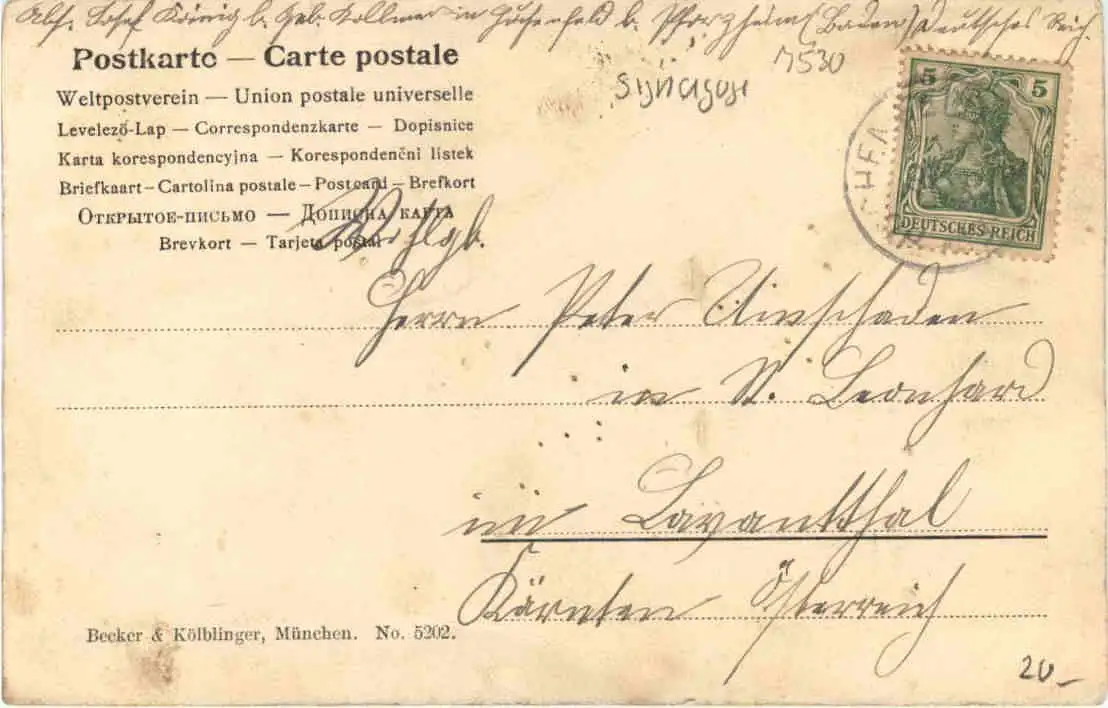 Abs. Josef König b. Geb. Kollmar in Huchenfeld b. Pforzheim (Baden) Deutsches Reich.
Postkarte — Carte postale
7530
Synagoge
Weltpostverein — Union postale universelle
Levelező-Lap — Correspondenzkarte — Dopisnice
Karta korespondencyjna — Korespondenční lístek
Briefkaart — Cartolina postale — Postcard — Brefkort
Открытое-письмо — Дописна карта
Brevkort — Tarjeta postal
5 5
DEUTSCHES REICH
Wohlgb.
Herrn Peter
in St. Leonhard
im Lavantthal
Kärnten Österreich
Becker & Kölblinger, München. No. 5202.
20_